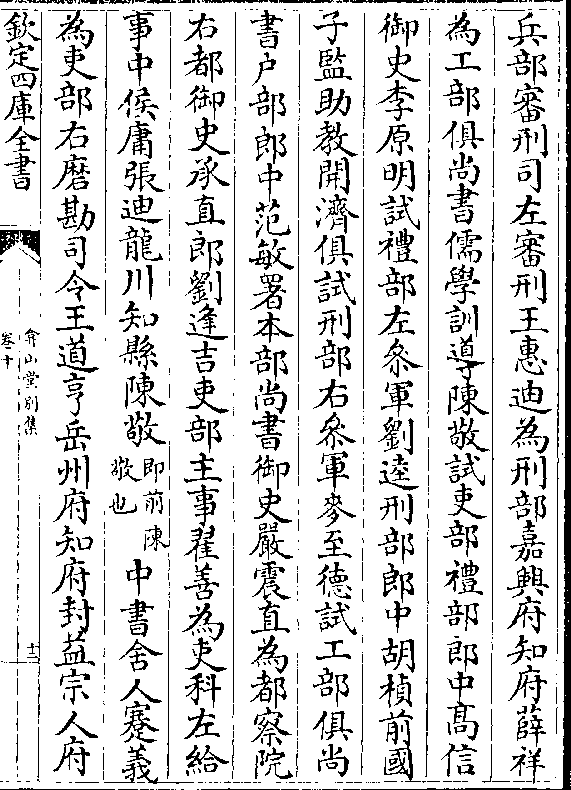 兵部審刑司左審刑王惠迪為刑部嘉興府知府薛祥
為工部俱尚書儒學訓導陳敬試吏部禮部郎中髙信
御史李原明試禮部左叅軍劉逵刑部郎中胡楨前國
子監助教開濟俱試刑部右叅軍麥至德試工部俱尚
書户部郎中范敏署本部尚書御史嚴震直為都察院
右都御史承直郎劉逢吉吏部主事翟善為吏科左給
事中侯庸張迪龍川知縣陳敬即前陳敬也中書舍人蹇義
為吏部右磨勘司令王道亨岳州府知府封益宗人府
欽定四庫全書
弇山堂别集
卷十
十二